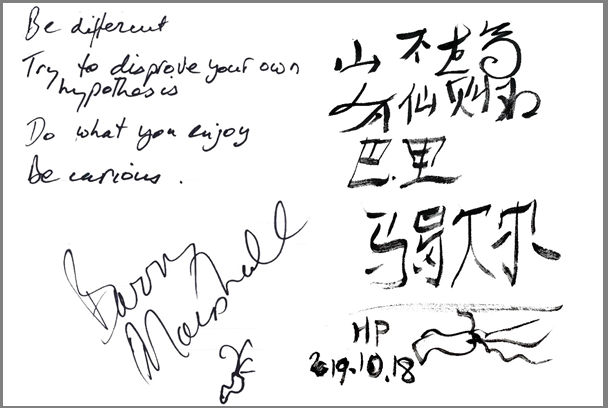 Be different
Try to disprove your own
hypothesis
Do what you enjoy
Be curious.
Barry
Marshall
山不在高
有仙则名
巴.里
马歇尔
HP
2019.10.18